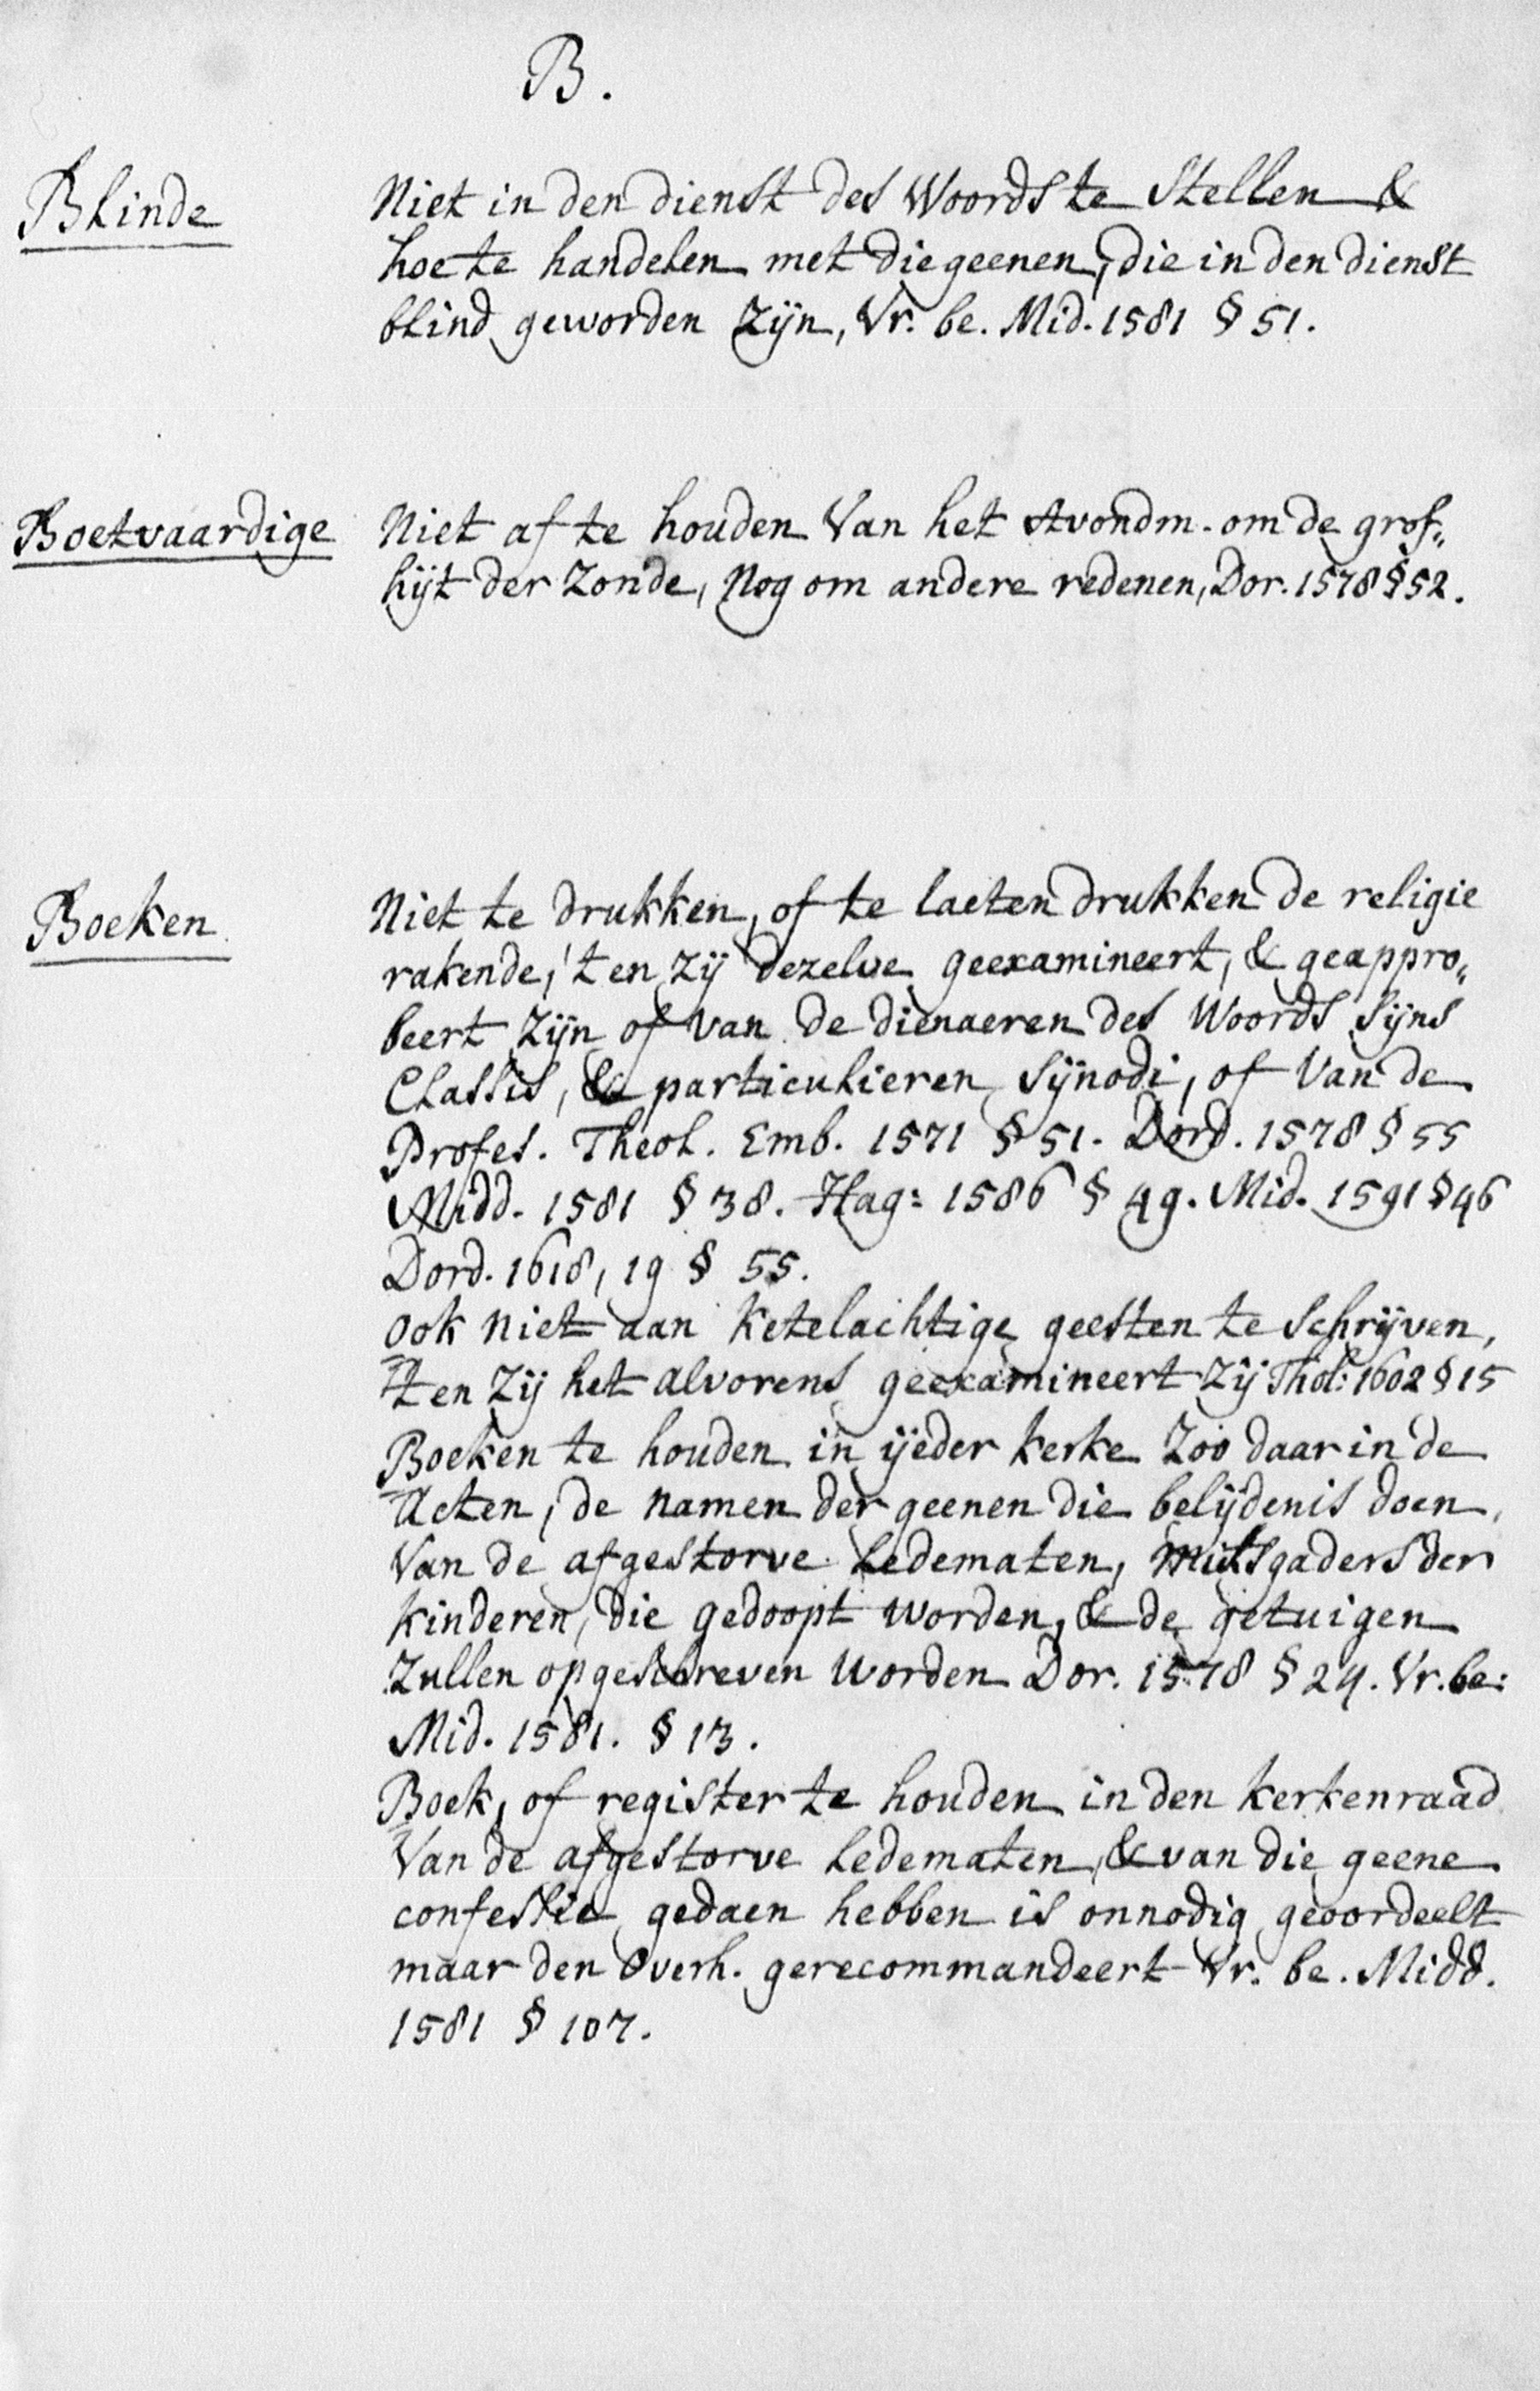 B.
Blinde
Niet in den dienst des Woords te stellen &
hoe te handelen met diegeenen, die in den dienst
blind geworden zijn, Vr. be. Mid. 1581 § 51.
Boetvaardige
Niet af te houden van het Avondm. om de grof„
hijt der Zonde, Nog om andere redenen, Dor. 1578 § 52.
Boeken
Niet te drukken, of te laeten drukken de religie
rakende, 't en zij dezelve geexamineert, & geappro„
beert zijn of van de dienaeren des Woords sijns
Classis, & particulieren Sijnodi, of van de
Profes. Theol. Emb. 1571 § 51. Dord. 1578 § 55
Midd. 1581 § 38. Hag: 1586 § 49. Mid. 1591 § 46
Dord. 1618, 19 § 55.
Ook niet aan ketelachtige geesten te schrijven,
't en zij het alvorens geexamineert zij Thol: 1602 § 15
Boeken te houden in ijeder kerke zoo daar in de
Acten, de namen der geenen die belijdenis doen,
van de afgestorve Ledematen, mitsgaders der
kinderen, die gedoopt worden, & de getuigen
zullen opgeschreven worden Dor. 1578 § 24. Vr. be:
Mid. 1581. § 13.
Boek, of register te houden in den kerkenraad
van de afgestorve Ledematen, & van die geene
confessie gedaen hebben is onnodig geoordeelt
maar den Overh. gerecommandeert Vr. be. Midd.
1581 § 107.